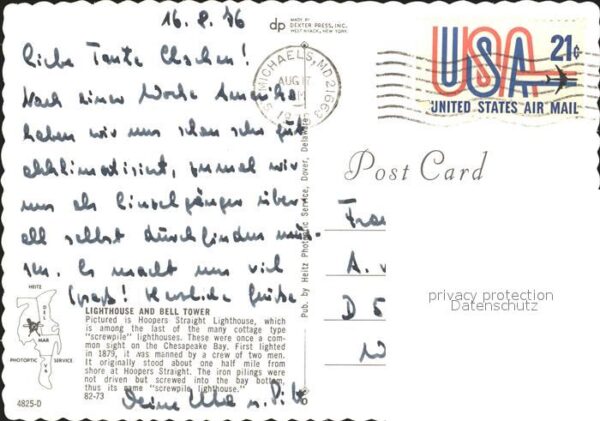 16.8.76
Liebe Tante Clachen!
Nach einer Woche Amerika
haben wir uns schon sehr gut
akklimatisiert, zumal wir
uns als Einzelgänger über-
all selbst durchfinden müs-
sen. Es macht uns viel
Spaß! Herzliche Grüße
Deine Ulla u.
dp MADE BY
DEXTER PRESS, INC.
WEST NYACK, NEW YORK
ST MICHAELS, MD 21663
AUG 17
USA 21¢
UNITED STATES AIR MAIL
Post Card
Pub. by Heitz Photoptic Service, Dover, Delaware
Fra
A. v
D 5
privacy protection
Datenschutz
HEITZ
DEL
MAR
VA
PHOTOPTIC SERVICE
4825-D
LIGHTHOUSE AND BELL TOWER
Pictured is Hoopers Straight Lighthouse, which
is among the last of the many cottage type
"screwpile" lighthouses. These were once a com-
mon sight on the Chesapeake Bay. First lighted
in 1879, it was manned by a crew of two men.
It originally stood about one half mile from
shore at Hoopers Straight. The iron pilings were
not driven but screwed into the bay bottom,
thus its name "screwpile lighthouse."
82-73